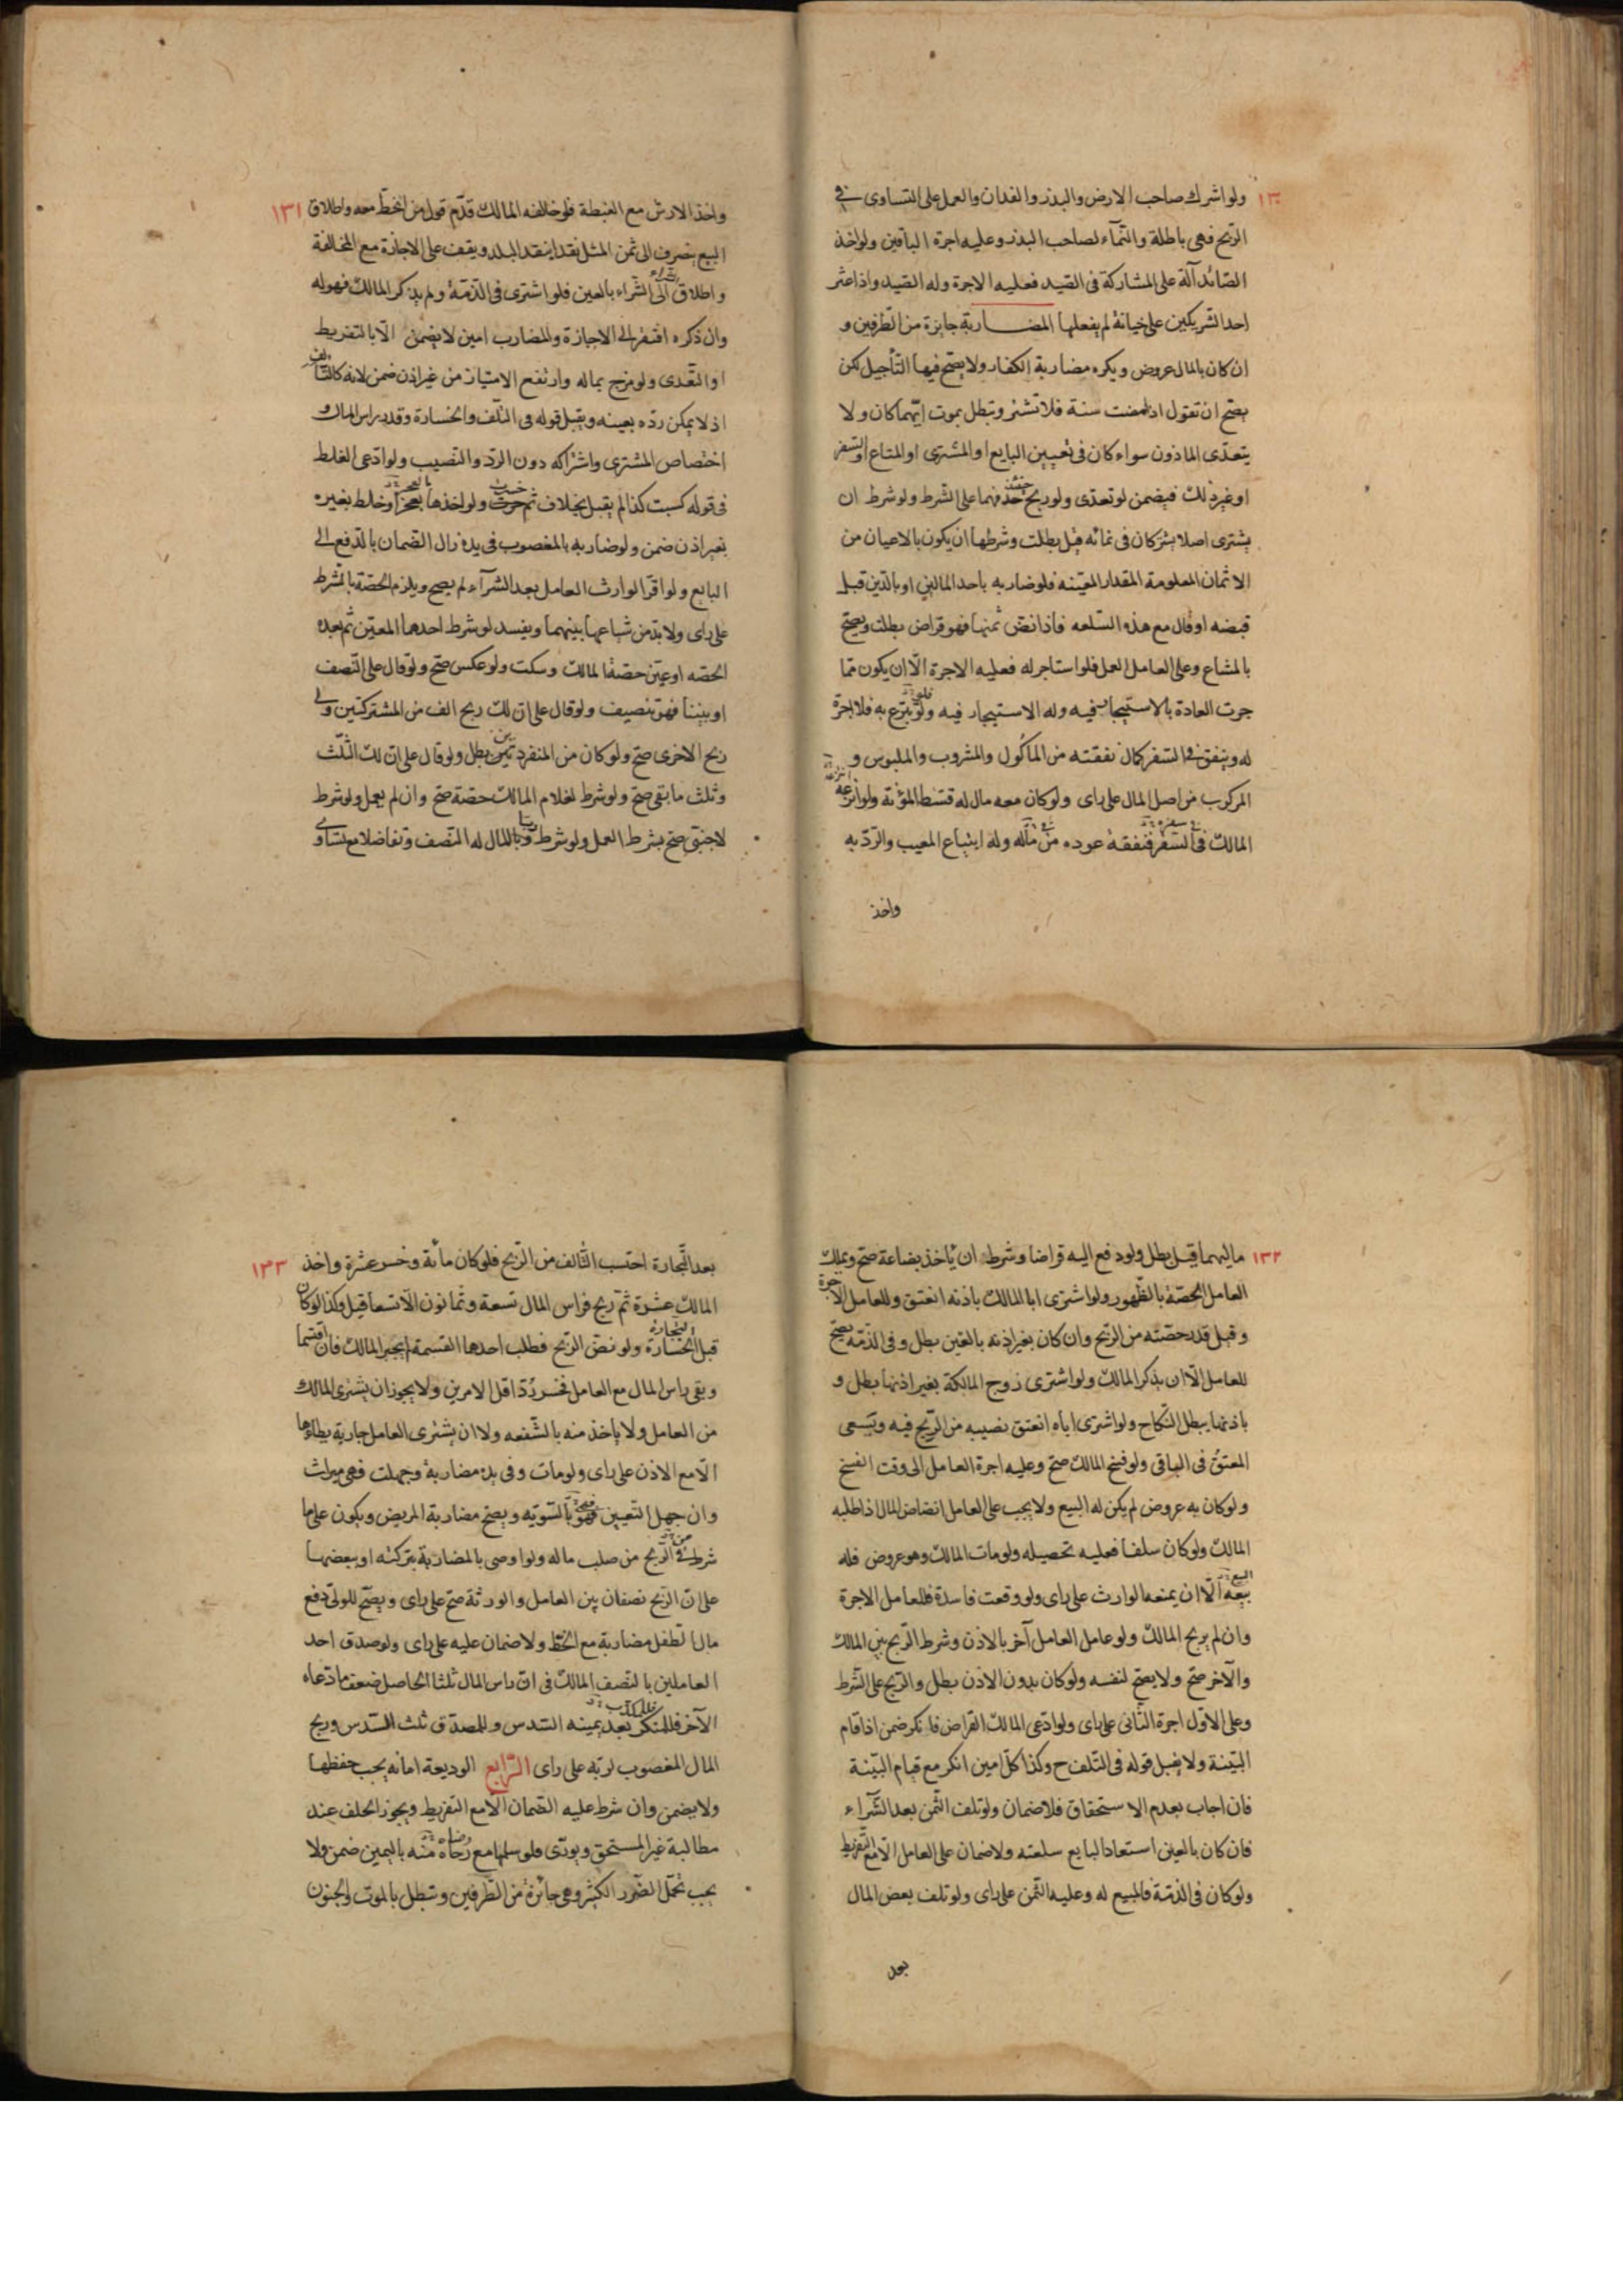 ١٣٠
ولو اشترك صاحب الارض والبذر والفدان والعمل على التساوى فى
الربح فهى باطلة والنمآء لصاحب البذر وعليه اجرة الباقين ولو اخذ
الصائد آلة على المشاركة فى الصيد فعليه الاجرة وله الصيد واذا عثر
احد الشريكين على خيانة لم يفعلها المضاربة جايزة من الطرفين و
ان كان بالمال عروض ويكره مضاربة الكفار ولا يصح فيها التأجيل لكن
يصح ان تقول اذا مضت سنة فلا تشتر وتبطل بموت ايهما كان ولا
يتعدى الماذون سواء كان فى تعيين البايع او المشترى او المتاع او السفر
او غير ذلك فيضمن لو تعدى ولو ربح فهما على الشرط ولو شرط ان
يشترى اصلا يشتركان فى نمائه قيل بطلت وشرطها ان يكون بالاعيان من
الاثمان المعلومة المقدار المعينه فلو ضاربه باحد المالين او بالدين قبل
قبضه او قال مع هذه السلعه فاذا نض ثمنها فهو قراض بطلت ويصح
بالمشاع وعلى العامل العمل فلو استاجر له فعليه الاجرة الّا ان يكون مما
جرت العادة بالاستيجار فيه وله الاستيجار فيه ولو تبرع به فلا اجرة
له وينفق فى السفر كمال نفقته من المأكول والمشروب والملبوس و
المركوب من اصل المال على راى ولو كان معه مال له قسّط المؤنة ولو انتزعه
المالك فى السفر فنفقة عوده من ماله وله ابتياع المعيب والرد به
واخذ
١٣١
واخذ الارش مع الغبطة فلو خالفه المالك قدّم قول من الحظ معه واطلاق
البيع يتصرف الى ثمن المثل نقدا بنقد البلد ويقف على الاجازة مع المخالفة
واطلاق الشراء الى الشراء بالعين فلو اشترى فى الذمة ولم يذكر المالك فهو له
وان ذكره افتقر الى الاجازة والمضارب امين لا يضمن الّا بالتفريط
او التعدى ولو مزج بماله وارتفع الامتياز من غير اذن ضمن لانه كالتالف
اذ لا يمكن ردّه بعينه ويقبل قوله فى التلف والخسارة وقدر راس المال و
اختصاص المشترى واشتراكه دون الرد والنصيب ولو ادعى الغلط
فى قوله كسبت كذا لم يقبل بخلاف ثم خسرت ولو اخذها بالعجز او خلط بغيره
بغير اذن ضمن ولو ضاربه بالمغصوب فى يده زال الضمان بالدفع الى
البايع ولو اقر الوارث العامل بعد الشرآء لم يصح ويلزم الحصة بالشرط
على راى ولا بد من شياعها بينهما ويفسد لو شرط احدهما المعين ثم بعده
الحصه او عيّن حصة المالك وسكت ولو عكس صح ولو قال على النصف
او بيننا فهو تنصيف ولو قال على ان لك ربح الف من المشتركتين ولى
ربح الاخرى صح ولو كان من المنفردتين بطل ولو قال على ان لك الثلث
وثلث ما بقى صح ولو شرط لغلام المالك حصة صح وان لم يعمل ولو شرط
لاجنبىّ صح بشرط العمل ولو شرط ربا المال له النصف وتفاضلا مع تساوى
١٣٢
ماليهما قيل بطل ولو دفع اليه قراضا وشرط ان يأخذ بضاعة صح ويملك
العامل الحصة بالظهور ولو اشترى ابا المالك باذنه انعتق وللعامل الاجرة
وقيل قدر حصته من الربح وان كان بغير اذنه بالعين بطل وفى الذمة يصح
للعامل الّا ان يذكر المالك ولو اشترى زوج المالكة بغير اذنها بطل و
باذنها يبطل النكاح ولو اشترى اباه انعتق نصيبه من الربح فيه ويسعى
المعتق فى الباقى ولو فسخ المالك صح وعليه اجرة العامل الى وقت الفسخ
ولو كان به عروض لم يكن له البيع ولا يجب على العامل انضاض المال اذا طلبه
المالك ولو كان سلفا فعليه تحصيله ولو مات المالك وهو عروض فله
بيعه الّا ان يمنعه الوارث على راى ولو وقعت فاسدة فللعامل الاجرة
وان لم يربح المالك ولو عامل العامل آخر بالاذن وشرط الربح بين المالك
والآخر صح ولا يصح لنفسه ولو كان بدون الاذن بطل والربح على الشرط
وعلى الاول اجرة الثانى على راى ولو ادعى المالك القراض فانكر ضمن اذا قام
البيّنة ولا يقبل قوله فى التلف ح وكذا كل امين انكر مع قيام البيّنة
فان اجاب بعدم الاستحقاق فلا ضمان ولو تلف الثمن بعد الشرآء
فان كان بالعين استعاد البايع سلعته ولا ضمان على العامل الّا مع التفريط
ولو كان فى الذمة فالمبيع له وعليه الثمن على راى ولو تلف بعض المال
بعد
١٣٣
بعد التجارة احتسب التالف من الربح فلو كان مائة وخسر عشرة واخذ
المالك عشرة ثم ربح فراس المال تسعة وثمانون الّا تسعا قيل وكذا لو كان
قبل التجارة ولو نض الربح فطلب احدهما القسمة لم يجبر المالك فان اقتسما
وبقى راس المال مع العامل فخسر ردّ اقل الامرين ولا يجوز ان يشترى المالك
من العامل ولا ياخذ منه بالشفعه ولا ان يشترى العامل جارية يطاءها
الّا مع الاذن على راى ولو مات وفى يده مضاربة وجهلت فهى ميراث
وان جهل التعيين فهو بالتسويه ويصح مضاربة المريض ويكون على ما
شرط من الربح من صلب ماله ولو اوصى بالمضاربة بتركته او ببعضها
على ان الربح نصفان بين العامل والورثة صح على راى ويصح للولىّ دفع
مال الطفل مضاربة مع الحظ ولا ضمان عليه على راى ولو صدق احد
العاملين بالنصف المالك فى ان راس المال ثلثا الحاصل ضعف ما ادعاه
الآخر فللمنكر بعد يمينه السدس وللمصدق ثلث السدس وربح
المال المغصوب لربّه على راى الرابع الوديعة امانه يجب حفظها
ولا يضمن وان شرط عليه الضمان الّا مع التفريط ويجوز الحلف عند
مطالبة غير المستحق ويورّى فلو سلمها مع رضاه منه باليمين ضمن ولا
يجب تحمّل الضرر الكثير وهى جائزة من الطرفين وتبطل بالموت والجنون